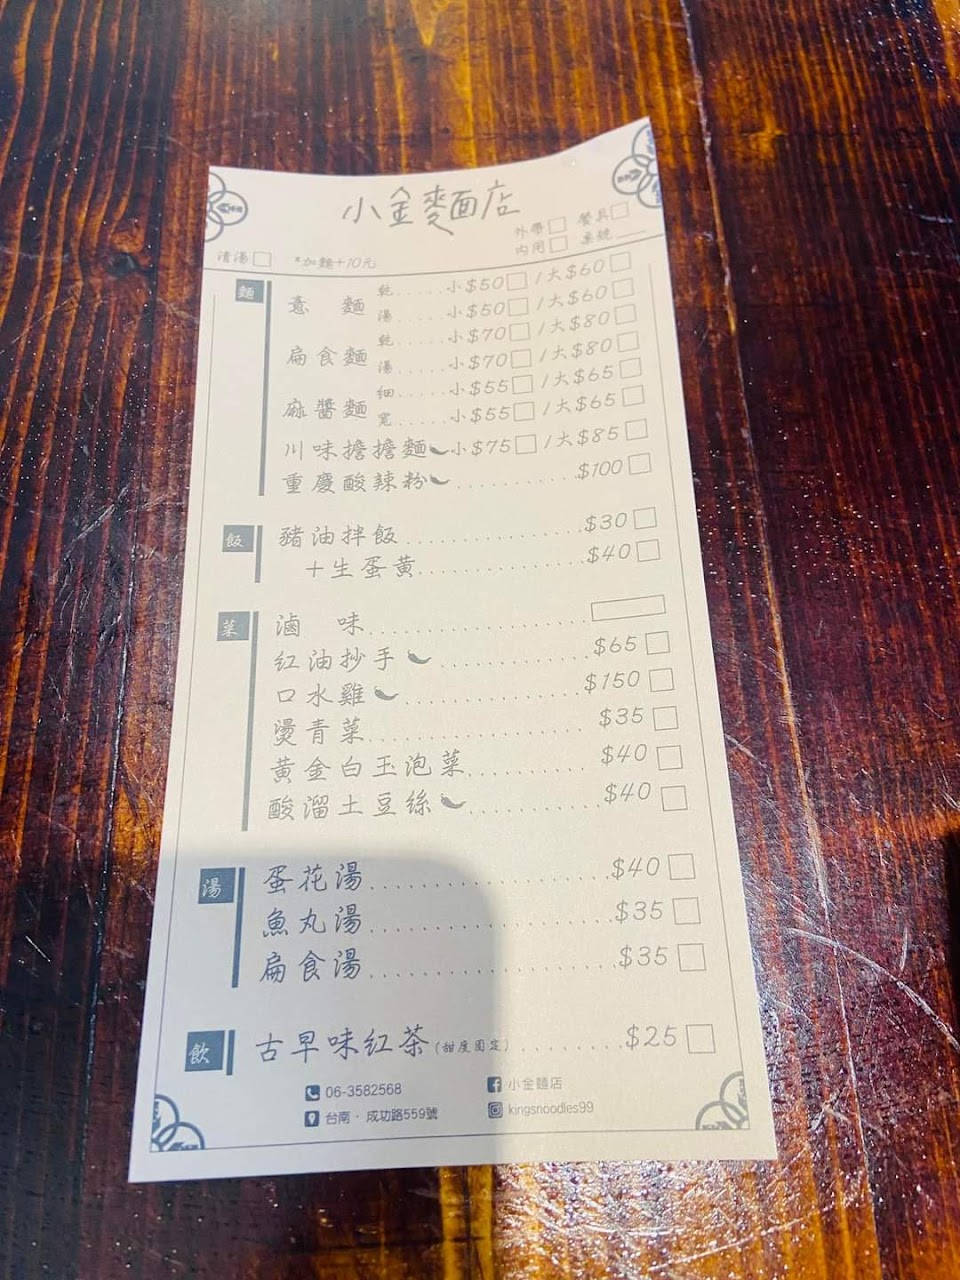 小金麵店
外帶□ 餐具□
內用□ 桌號___
清湯□ *加麵+10元
麵
意 麵 乾.....小$50□/大$60□
湯.....小$50□/大$60□
扁食麵 乾.....小$70□/大$80□
湯.....小$70□/大$80□
麻醬麵 細.....小$55□/大$65□
寬.....小$55□/大$65□
川味擔擔麵 小$75□/大$85□
重慶酸辣粉............$100□
飯
豬油拌飯..................$30□
+生蛋黃................$40□
菜
滷 味......................
紅油抄手..............$65□
口水雞................$150□
燙青菜....................$35□
黃金白玉泡菜............$40□
酸溜土豆絲............$40□
湯
蛋花湯....................$40□
魚丸湯....................$35□
扁食湯....................$35□
飲
古早味紅茶(甜度固定).........$25□
06-3582568 小金麵店
台南・成功路559號 kingsnoodles99